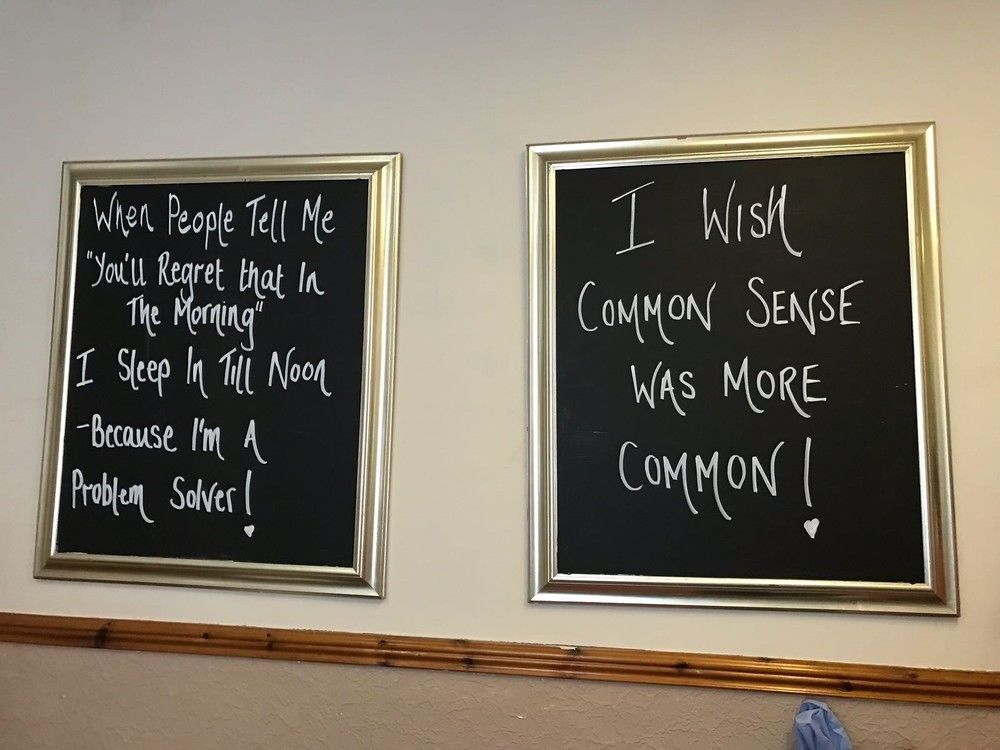 When People Tell Me
"You'll Regret that In
The Morning"
I Sleep In Till Noon
-Because I'm A
Problem Solver!
I Wish
Common Sense
Was More
Common!